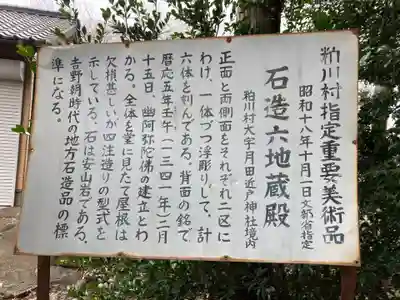 粕川村指定重要美術品
昭和十八年十月一日文部省指定
石造六地蔵殿
粕川村大字月田近戸神社境内
正面と両側面をそれぞれ二区に
わけ、一体づつ浮彫りして、計
六体を刻んである。背面の銘で
暦応五年壬午(一三四一年)二月
十五日、幽阿弥陀佛の建立とわ
かる。全体を堂に見たて屋根は
欠損甚しいが四注造りの型式を
示している。石は安山岩である。
吉野朝時代の地方石造品の標
準になる。